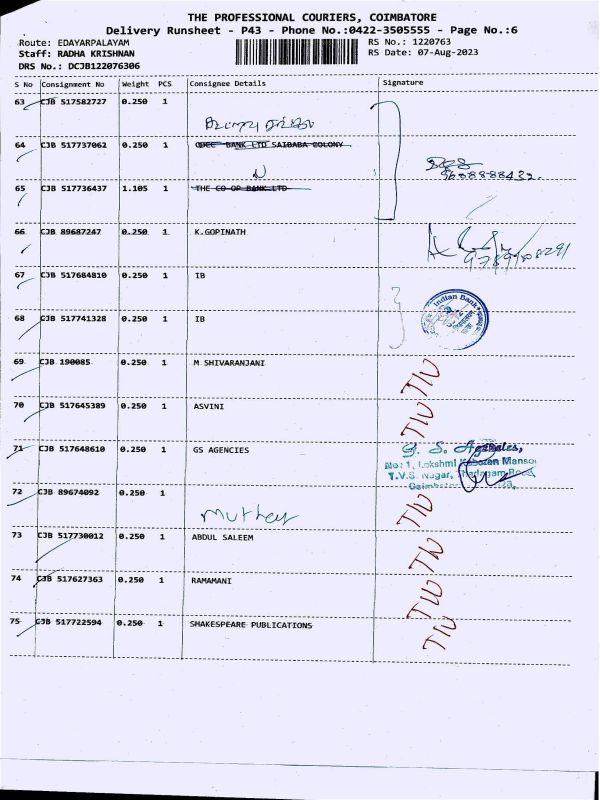 THE PROFESSIONAL COURIERS, COIMBATORE
Delivery Runsheet - P43 - Phone No.:0422-3505555 - Page No.:6
Route: EDAYARPALAYAM RS No.: 1220763
Staff: RADHA KRISHNAN RS Date: 07-Aug-2023
DRS No.: DCJB122076306
S No Consignment No Weight PCS Consignee Details Signature
63 CJB 517582727 0.250 1
64 CJB 517737062 0.250 1 BANK LTD SAIBABA COLONY
65 CJB 517736437 1.105 1 THE CO OP BANK LTD
66 CJB 89687247 0.250 1 K.GOPINATH
67 CJB 517684810 0.250 1 IB
Indian Bank
68 CJB 517741328 0.250 1 IB
69 CJB 190085 0.250 1 M SHIVARANJANI TIW
70 CJB 517645389 0.250 1 ASVINI TIW
71 CJB 517648610 0.250 1 GS AGENCIES G. S. Agencies,
No: 1, Lakshmi Manso
T.V.S. Nagar,
72 CJB 89674092 0.250 1 TIW
Muthu
73 CJB 517730012 0.250 1 ABDUL SALEEM TIW
74 CJB 517627363 0.250 1 RAMAMANI TIW
75 CJB 517722594 0.250 1 SHAKESPEARE PUBLICATIONS TIW